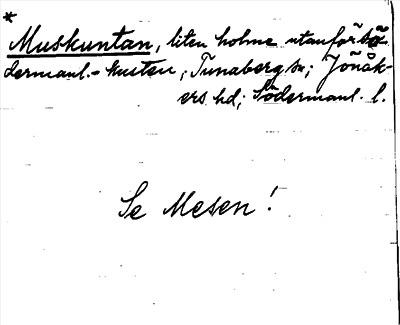 *
Muskuntan, liten holme utanför Sö-
dermanl.-kusten; Tunaberg sn; Jönåk-
ers hd; Södermanl. l.
Se Mesen!